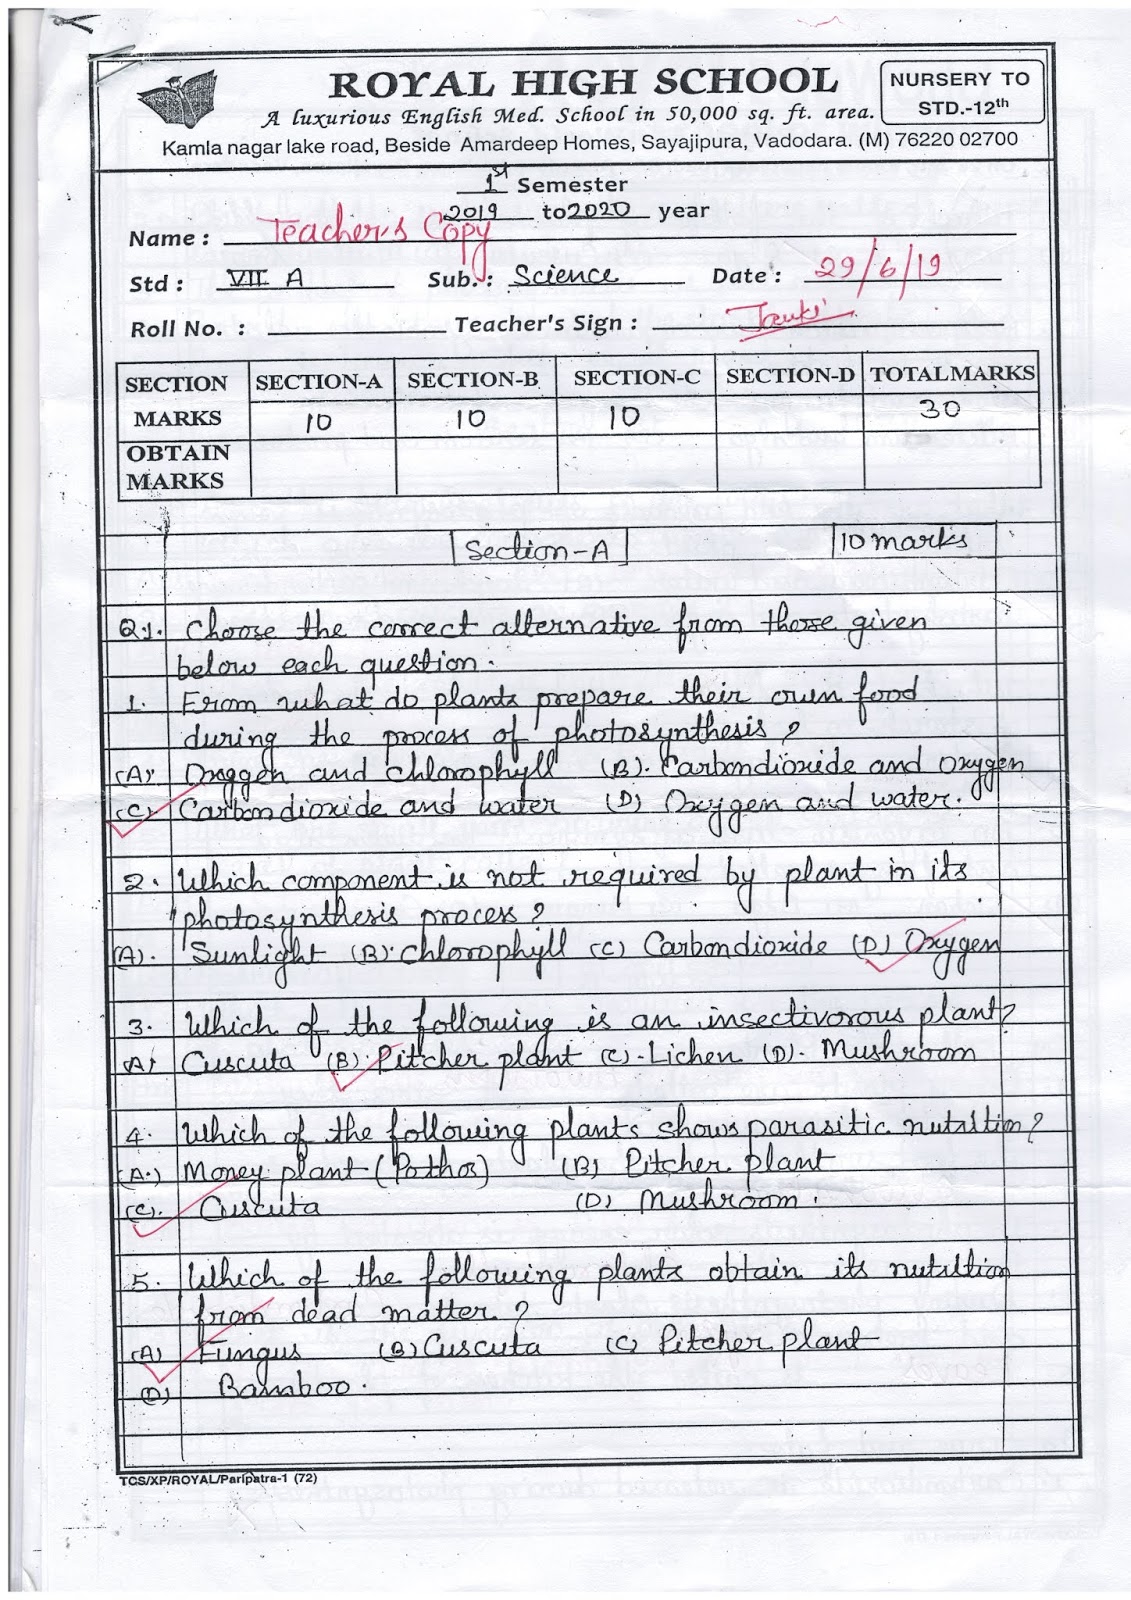 ROYAL HIGH SCHOOL
NURSERY TO
STD.-12th
A luxurious English Med. School in 50,000 sq. ft. area.
Kamla nagar lake road, Beside Amardeep Homes, Sayajipura, Vadodara. (M) 76220 02700
1st Semester
2019 to 2020 year
Name : Teacher's Copy
Std : VII A Sub. : Science Date : 29/6/19
Roll No. : Teacher's Sign :
SECTION SECTION-A SECTION-B SECTION-C SECTION-D TOTALMARKS
MARKS 10 10 10 30
OBTAIN
MARKS
Section-A 10 marks
Q.1. Choose the correct alternative from those given
below each question.
1. From what do plants prepare their own food
during the process of photosynthesis?
(A). Oxygen and chlorophyll (B). Carbondioxide and oxygen
(C) Carbondioxide and water (D) Oxygen and water.
2. Which component is not required by plant in its
photosynthesis process?
(A). Sunlight (B). Chlorophyll (C) Carbondioxide (D) Oxygen
3. Which of the following is an insectivorous plant?
(A) Cuscuta (B). Pitcher plant (C). Lichen (D). Mushroom
4. Which of the following plants shows parasitic nutrition?
(A.) Money plant (Pothos) (B) Pitcher plant
(C). Cuscuta (D) Mushroom.
5. Which of the following plants obtain its nutrition
from dead matter?
(A) Fungus (B) Cuscuta (C) Pitcher plant
(D) Bamboo.
TCS/XP/ROYAL/Paripatra-1 (72)